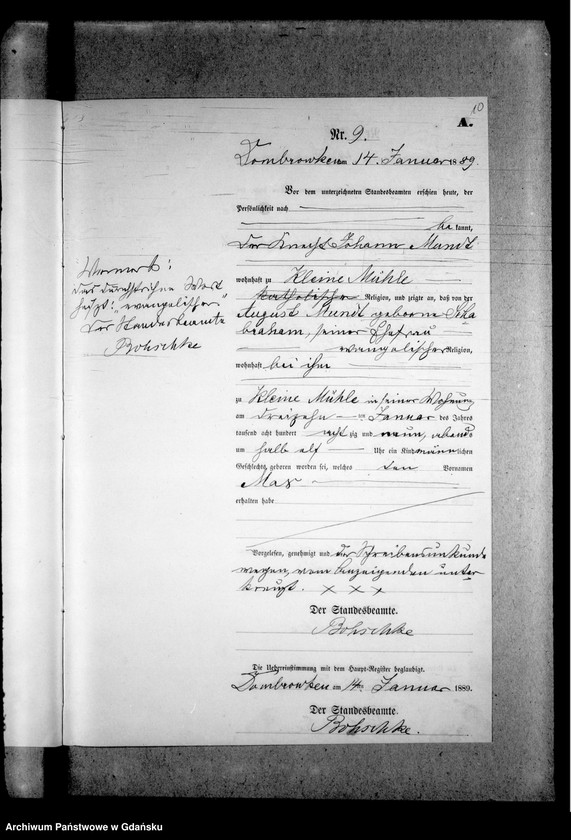 10
A.
Nr. 9.
Dombrowken am 14. Januar 1889.
Vor dem unterzeichneten Standesbeamten erschien heute, der
Persönlichkeit nach
be kannt,
der Knecht Johann Mundt
wohnhaft zu Kleine Mühle
katholischer Religion, und zeigte an, daß von der
August Mundt geborene Ska
braham, seiner Ehefrau
evangelischer Religion,
wohnhaft bei ihm
zu Kleine Mühle in seiner Wohnung
am dreizehn ten Januar des Jahres
tausend acht hundert acht zig und neun, abends
um halb elf Uhr ein Kind männlichen
Geschlechts geboren worden sei, welches den Vornamen
Max
erhalten habe
Vorgelesen, genehmigt und der Schreibensunkunde
wegen vom Anzeigenden unter
kreuzt. x x x
Der Standesbeamte.
Bohschke
Die Uebereinstimmung mit dem Haupt-Register beglaubigt.
Dombrowken am 14. Januar 1889.
Der Standesbeamte.
Bohschke.
Vermerk:
das durchstrichene Wort
heißt: "evangelischer"
Der Standesbeamte
Bohschke
Archiwum Państwowe w Gdańsku